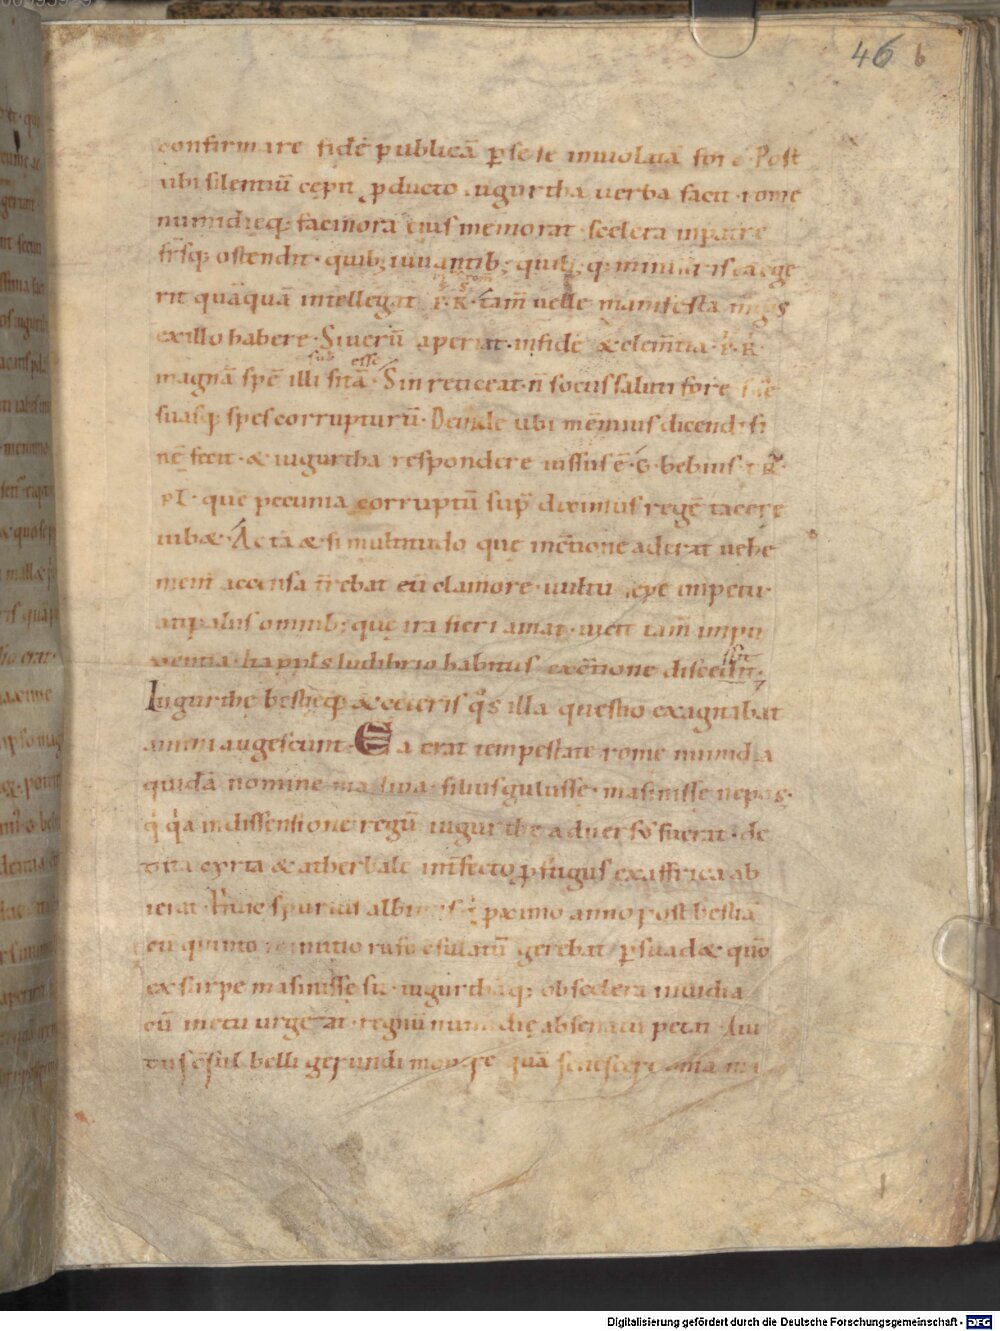 46 b
confirmare fidē publicā ꝑ se se inuiolatā fore. Post
ubi silentiū cepit ꝓducto iugurtha uerba facit. rome
numidieq; facinora eius memorat. scelera in patrē
fr̄sq; ostendit. quib; iuuantib; quib; q; ministris ea ege
rit quāquā intellegat .P.R. tam̄ uelle manifesta magis
ex illo habere. Si uerū aperiat. in fide & clem̄tia .P.R.
magnā spē illi sitā. Sin reticeat. n̄ sociis saluti fore se
suasq; spes corrupturū. Deinde ubi mēmius dicendi fi
nē fecit. & iugurtha respondere iussus ē. G. bebius. t R.
pl. que pecunia corruptū sup̄ diximus regē tacere
iubæ. Ac ta & si multitudo que in c̄tione aderat uehe
ment accensa t̄rebat eū clamore. uultu sepe impetu.
atq; aliis omnib; que ira fieri amat. uicit tam̄ impu
dentia. Ita ppl̄s ludibrio habitus ex c̄tione discedit.
Iugurthe bestieq; & ceteris q̊s illa questio exagitabat
animi augescunt. Ea erat tempestate rome numida
quidā nomine massiua. filius gulusse. masinisse nepos.
q̇ q̇a in dissensione regū iugurthe aduersus fuerat. de
dita cyrta & atherbale int̄fecto ꝓfugus ex affrica ab
ierat. Huic spurius albinus q̇ ꝓximo anno post bestiā
cū quinto minutio rufo c̄sulatū gerebat ꝑsuadæ quō
ex stirpe masinisse sit. iugurthāq; ob scelera inuidia
cū metu urgeat. regnū numidię ab senatu petat. Aui
dus c̄sul belli gerundi mouere quā senescere omia ma
Digitalisierung gefördert durch die Deutsche Forschungsgemeinschaft - DFG